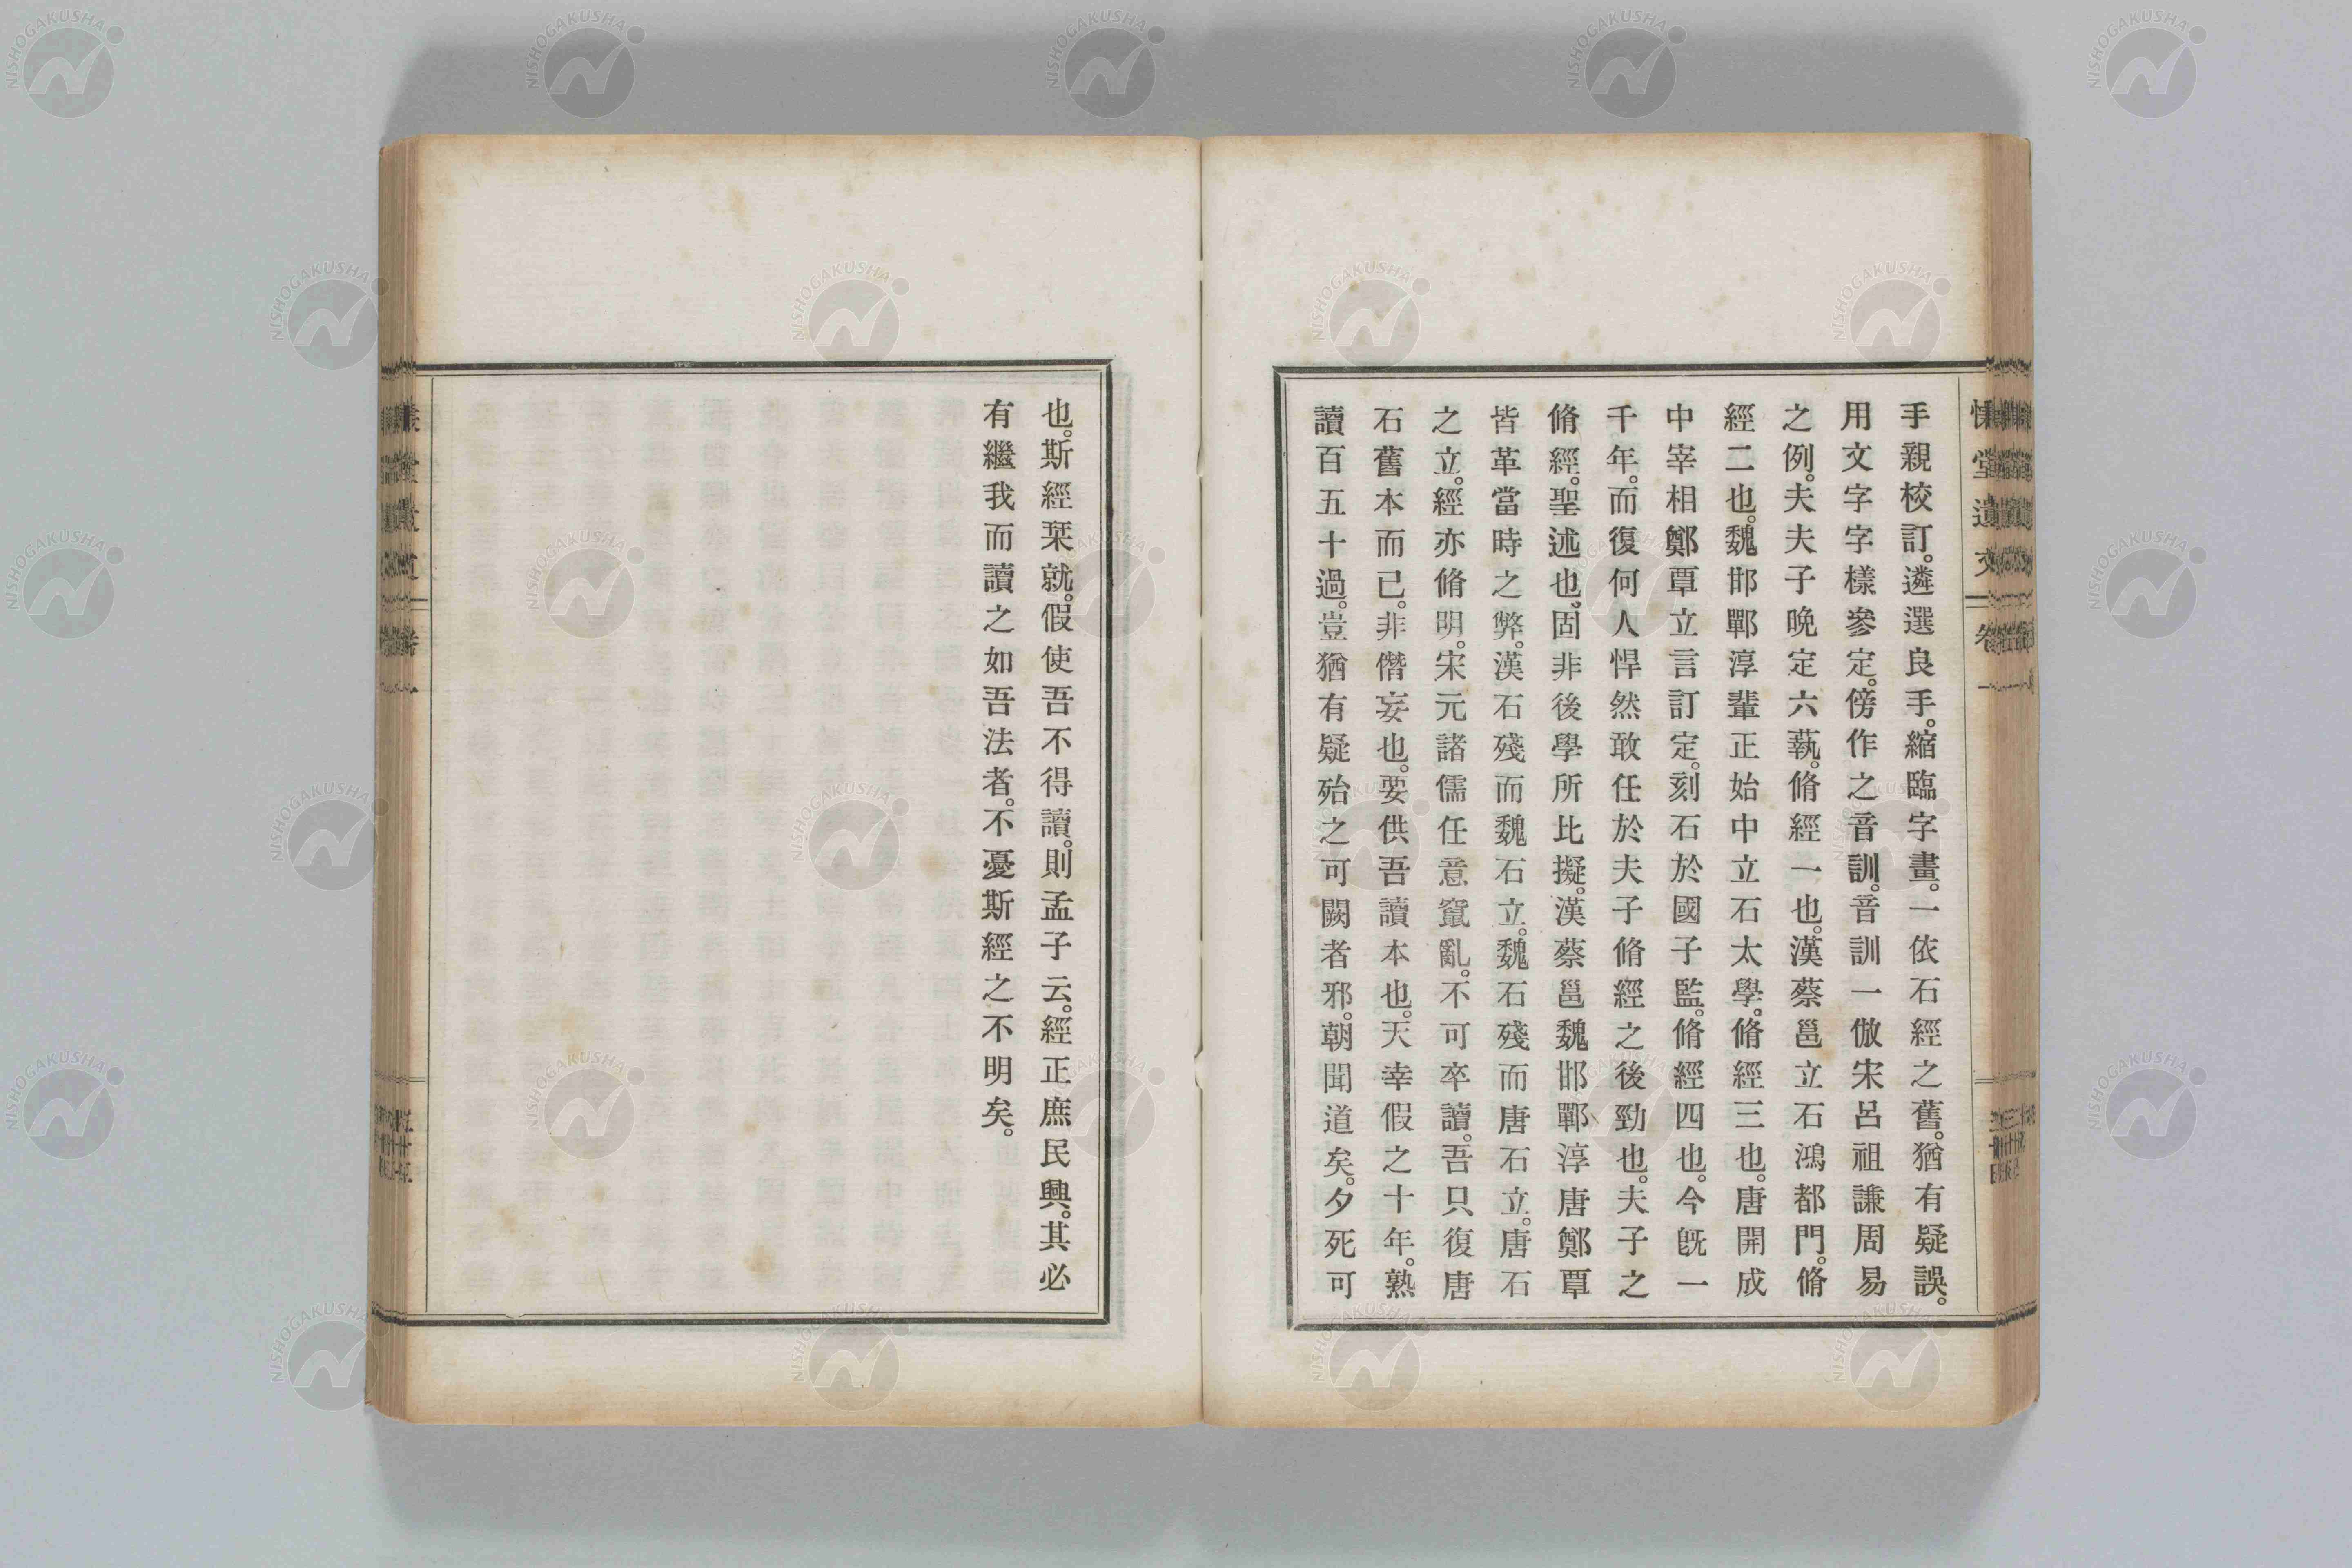 慊堂遺文
卷一
手親校訂。遴選良手。縮臨字畫。一依石經之舊。猶有疑誤。
用文字字樣參定。傍作之音訓。音訓一倣宋呂祖謙周易
之例。夫夫子晚定六蓺。脩經一也。漢蔡邕立石鴻都門。脩
經二也。魏邯鄲淳輩正始中立石太學。脩經三也。唐開成
中宰相鄭覃立言訂定。刻石於國子監。脩經四也。今旣一
千年。而復何人悍然敢任於夫子脩經之後勁也。夫子之
脩經。聖述也。固非後學所比擬。漢蔡邕魏邯鄲淳唐鄭覃
皆革當時之弊。漢石殘而魏石立。魏石殘而唐石立。唐石
之立。經亦脩明。宋元諸儒任意竄亂。不可卒讀。吾只復唐
石舊本而已。非僭妄也。要供吾讀本也。天幸假之十年。熟
讀百五十過。豈猶有疑殆之可闕者邪。朝聞道矣。夕死可
也。斯經栞就。假使吾不得讀。則孟子云。經正庶民興。其必
有繼我而讀之如吾法者。不憂斯經之不明矣。
NISHOGAKUSHA